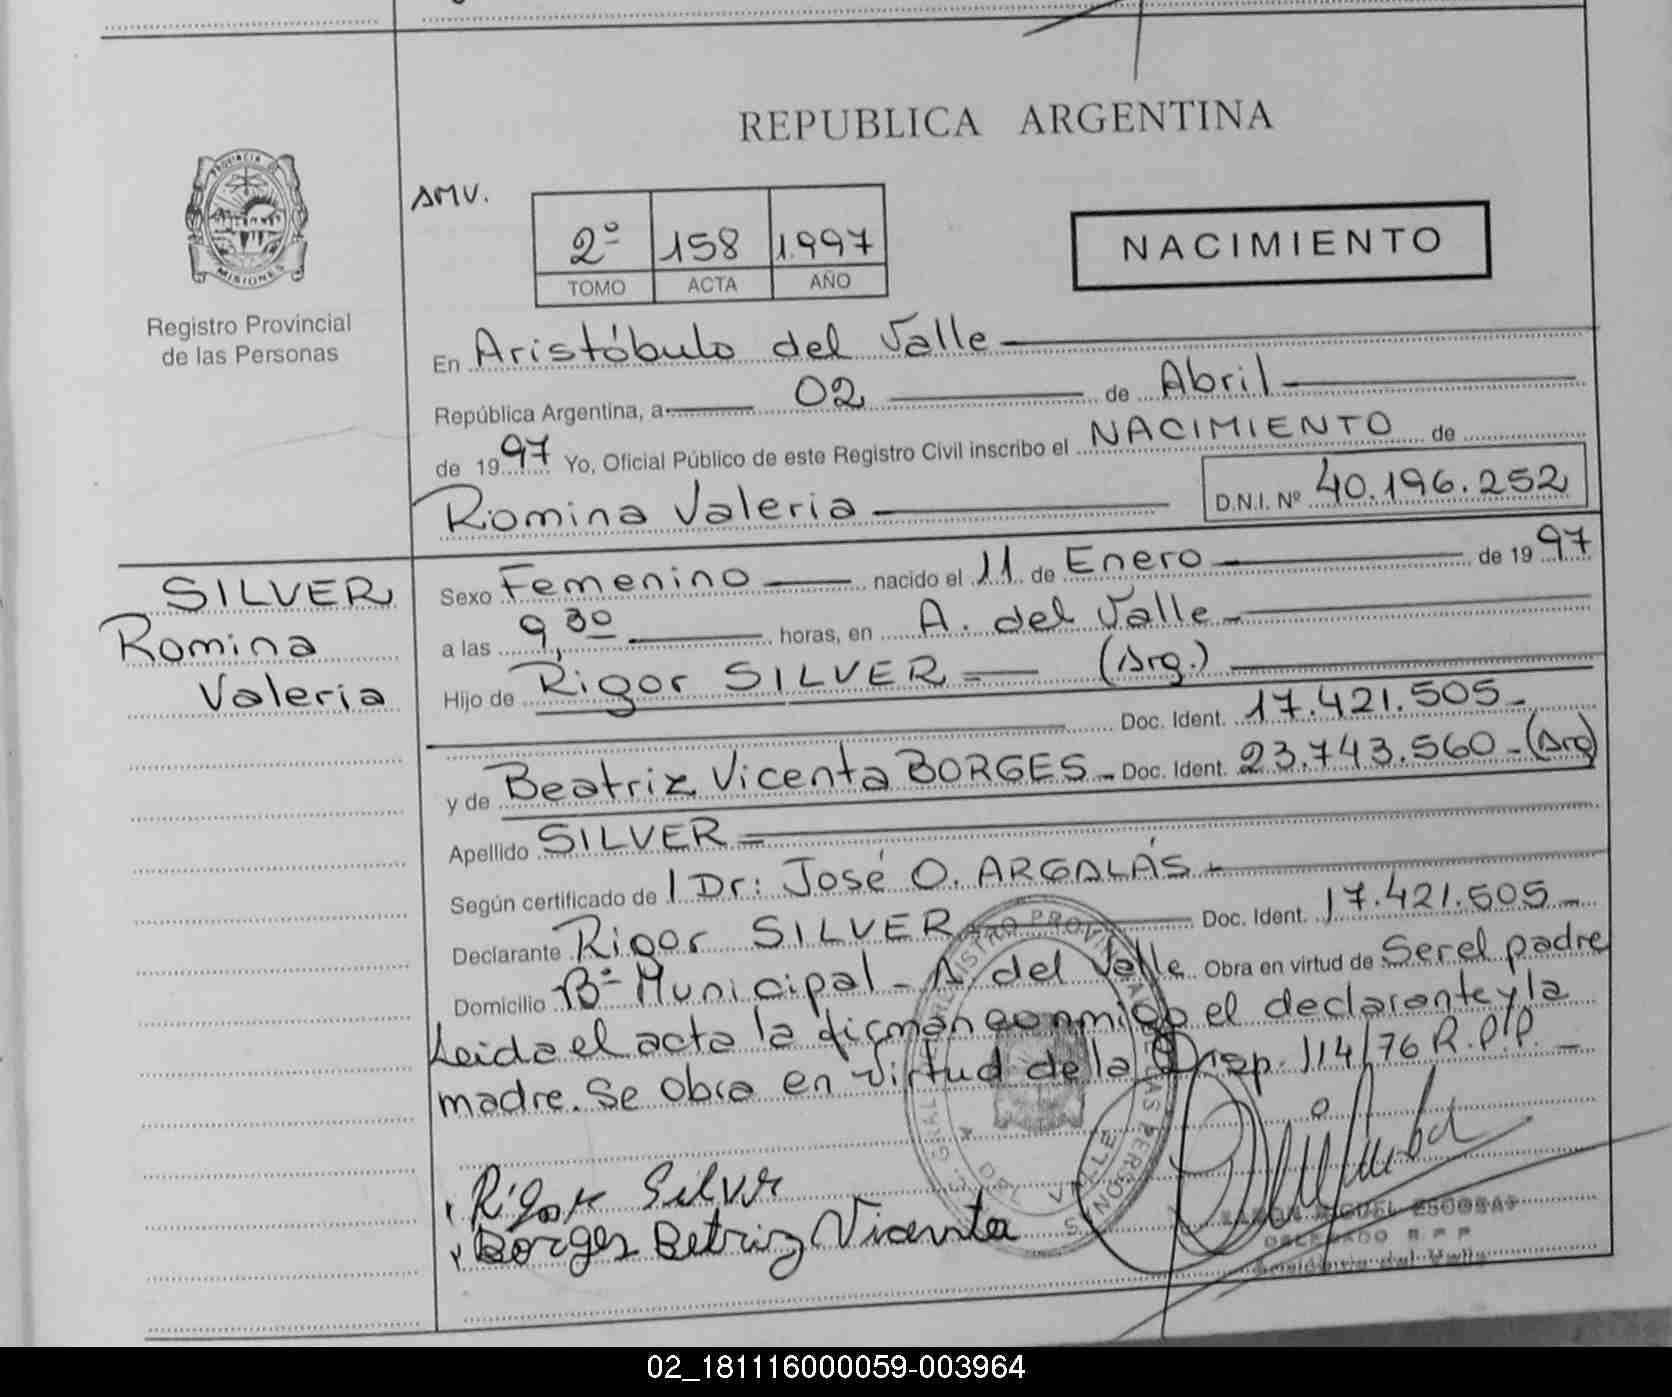 REPUBLICA ARGENTINA
PROVINCIA DE
MISIONES
Registro Provincial
de las Personas
AMV.
2º 158 1.997
TOMO ACTA AÑO
NACIMIENTO
En Aristóbulo del Valle
República Argentina, a 02 de Abril
de 1997 Yo, Oficial Público de este Registro Civil inscribo el NACIMIENTO de
Romina Valeria D.N.I. Nº 40.196.252
SILVER
Romina
Valeria
Sexo Femenino nacido el 11 de Enero de 1997
a las 9,30 horas, en A. del Valle
Hijo de Rigor SILVER = (Arg.)
Doc. Ident. 17.421.505-
y de Beatriz Vicenta BORGES - Doc. Ident. 23.743.560-(Arg)
Apellido SILVER =
Según certificado de l Dr: José O. ARGALÁS-
Declarante Rigor SILVER Doc. Ident. 17.421.505-
Domicilio Bº Municipal - A del Valle Obra en virtud de Ser el padre
Leida el acta la firman conmigo el declarante y la
madre. Se obra en virtud de la Disp. 114/76 R.P.P. -
Rigor Silvr
Borges Betriz Vicenta
MIGUEL ESCOBAR
DELEGADO R.P.P.
del Valle
02_181116000059-003964